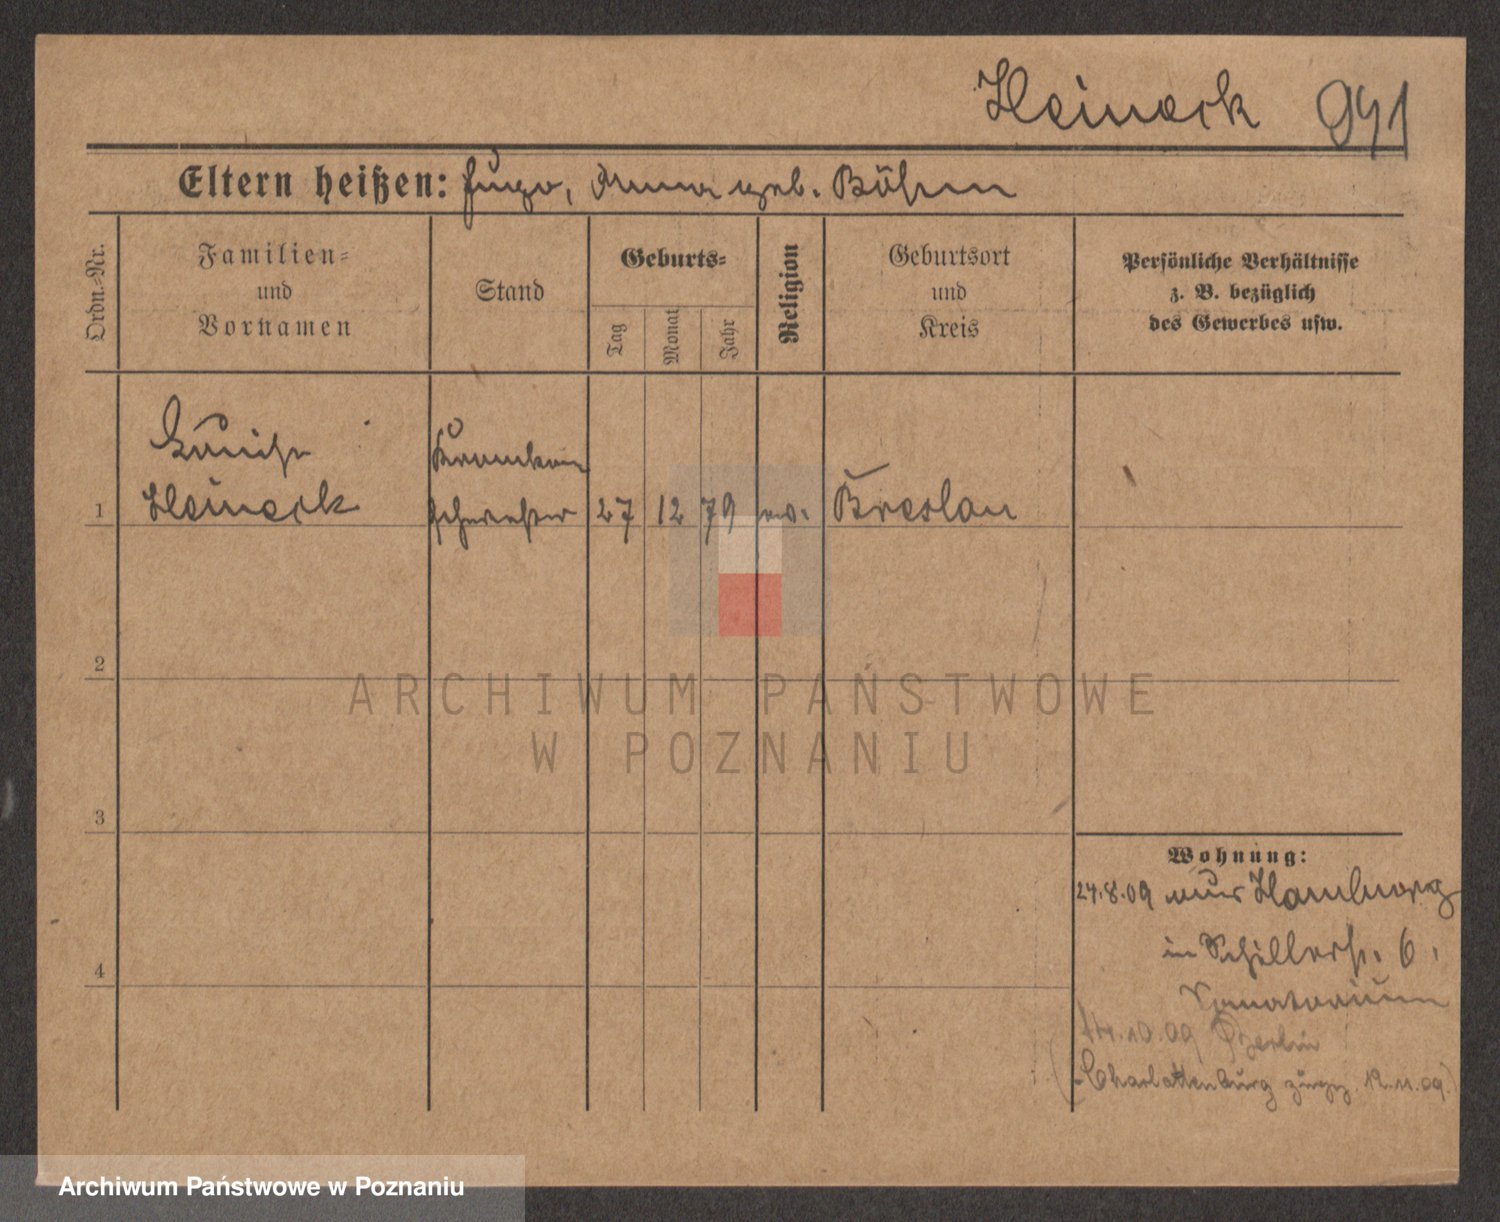 Heineck 941
Eltern heißen: Hugo, Anna geb. Böhm
Ordn.-Nr.
Familien-
und
Vornamen
Stand
Geburts-
Tag
Monat
Jahr
Religion
Geburtsort
und
Kreis
Persönliche Verhältnisse
z. B. bezüglich
des Gewerbes usw.
Louise
Heineck
Kranken
schwester
1
27 12 79 ev. Breslau
2
ARCHIWUM PAŃSTWOWE
W POZNANIU
3
Wohnung:
24.8.09 aus Hamburg
in Schillerstr. 6,
4
Sanatorium
10.09 Berlin
Charlottenburg 12.11.09.)
Archiwum Państwowe w Poznaniu